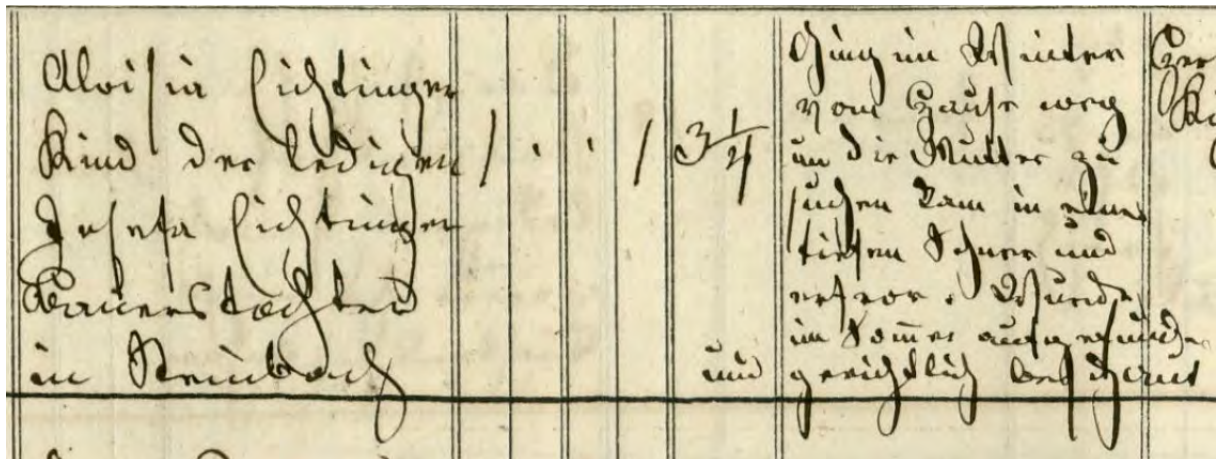 Aloisia Eichtinger
Kind der ledigen
Josefa Eichtinger
Bauerstochter
in Steinbach
/ . . / 3 1/4
Ging im Winter
vom Hause weg
um die Mutter zu
suchen kam in einen
tiefen Schnee und
erfror. Wurde
im Som̅er aufgefunden
und gerichtlich beschaut